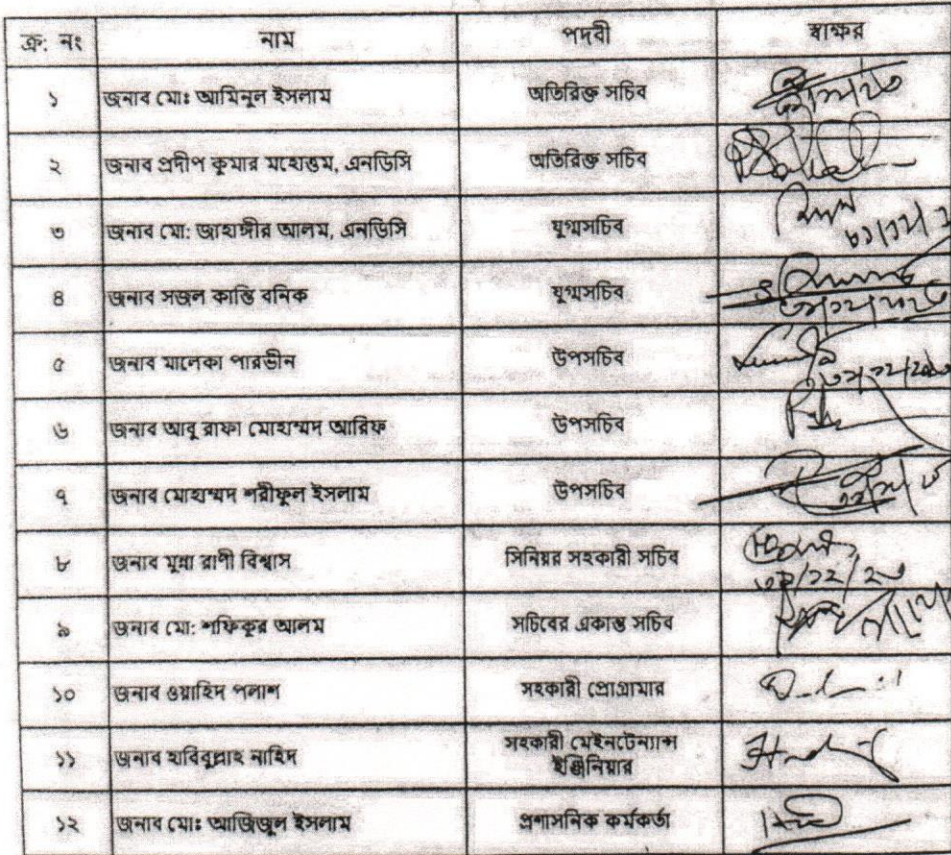 ক্র: নং নাম পদবী স্বাক্ষর
১ জনাব মোঃ আমিনুল ইসলাম অতিরিক্ত সচিব
২ জনাব প্রদীপ কুমার মহোত্তম, এনডিসি অতিরিক্ত সচিব
৩ জনাব মো: জাহাঙ্গীর আলম, এনডিসি যুগ্মসচিব
৪ জনাব সজল কান্তি বনিক যুগ্মসচিব
৫ জনাব মালেকা পারভীন উপসচিব
৬ জনাব আবু রাফা মোহাম্মদ আরিফ উপসচিব
৭ জনাব মোহাম্মদ শরীফুল ইসলাম উপসচিব
৮ জনাব মুন্না রাণী বিশ্বাস সিনিয়র সহকারী সচিব
৯ জনাব মো: শফিকুর আলম সচিবের একান্ত সচিব
১০ জনাব ওয়াহিদ পলাশ সহকারী প্রোগ্রামার
১১ জনাব হাবিবুল্লাহ নাহিদ সহকারী মেইনটেন্যান্স
ইঞ্জিনিয়ার
১২ জনাব মোঃ আজিজুল ইসলাম প্রশাসনিক কর্মকর্তা